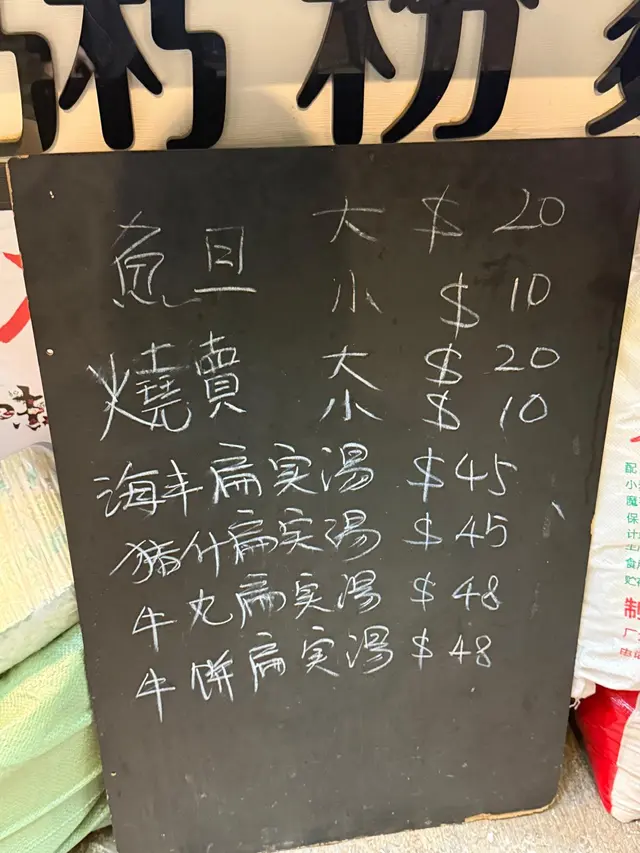 粥粉
魚旦 大 $20
小 $10
燒賣 大 $20
小 $10
海丰扁实湯 $45
猪什扁实湯 $45
牛丸扁实湯 $48
牛餅扁实湯 $48
配
小
保
制